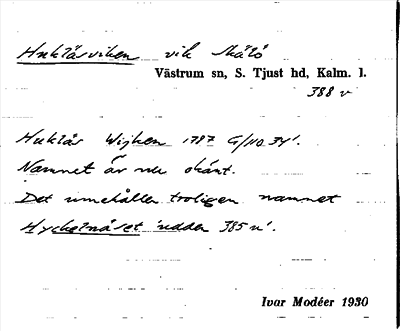 Huklåsviken vik Skälö
Västrum sn, S. Tjust hd, Kalm. l.
388 v
Huklås Wijken 1787 G/110.34'.
Namnet är nu okänt.
Det innehåller troligen namnet
Hyckelnäset 'udden 385 v'.
Ivar Modéer 1930